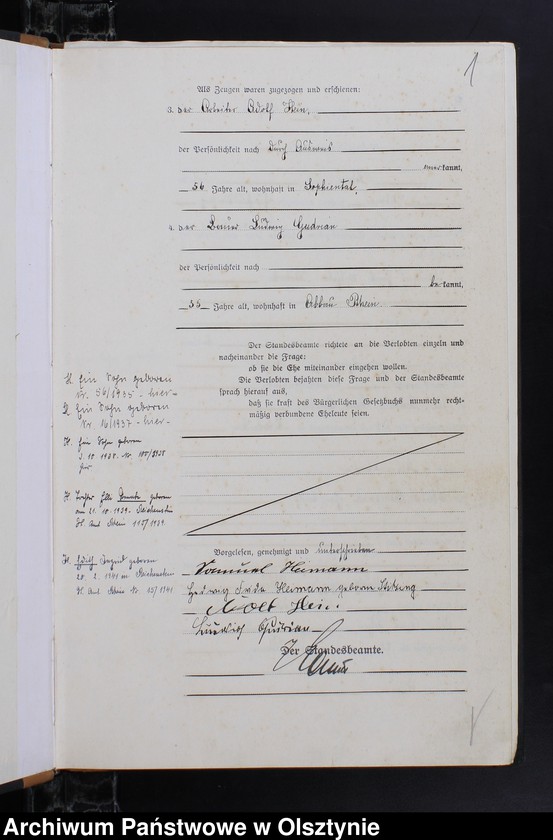 1
Als Zeugen waren zugezogen und erschienen:
3. der Arbeiter Adolf Hein,
der Persönlichkeit nach durch Ausweis
anerkannt,
56 Jahre alt, wohnhaft in Sophiental,
4. der Bauer Ludwig Gudrian
der Persönlichkeit nach
bekannt,
55 Jahre alt, wohnhaft in Abbau Rhein
Der Standesbeamte richtete an die Verlobten einzeln und
nacheinander die Frage:
ob sie die Ehe miteinander eingehen wollen.
Die Verlobten bejahten diese Frage und der Standesbeamte
sprach hierauf aus,
daß sie kraft des Bürgerlichen Gesetzbuchs nunmehr recht-
mäßig verbundene Eheleute seien.
1. Ein Sohn geboren
Nr. 56/1935 - hier -
2. Ein Sohn geboren
Nr. 16/1937 - hier -
Ein Sohn geboren
1938 Nr.
hier
Tochter geboren
am 21. 10. 1939
1939
geboren
28. 2. 1941
1941
Vorgelesen, genehmigt und unterschrieben
Samuel Heimann
Hedwig Frida Heimann geborene
Adolf Hein.
Ludwig Gudrian
Der Standesbeamte.
Archiwum Państwowe w Olsztynie